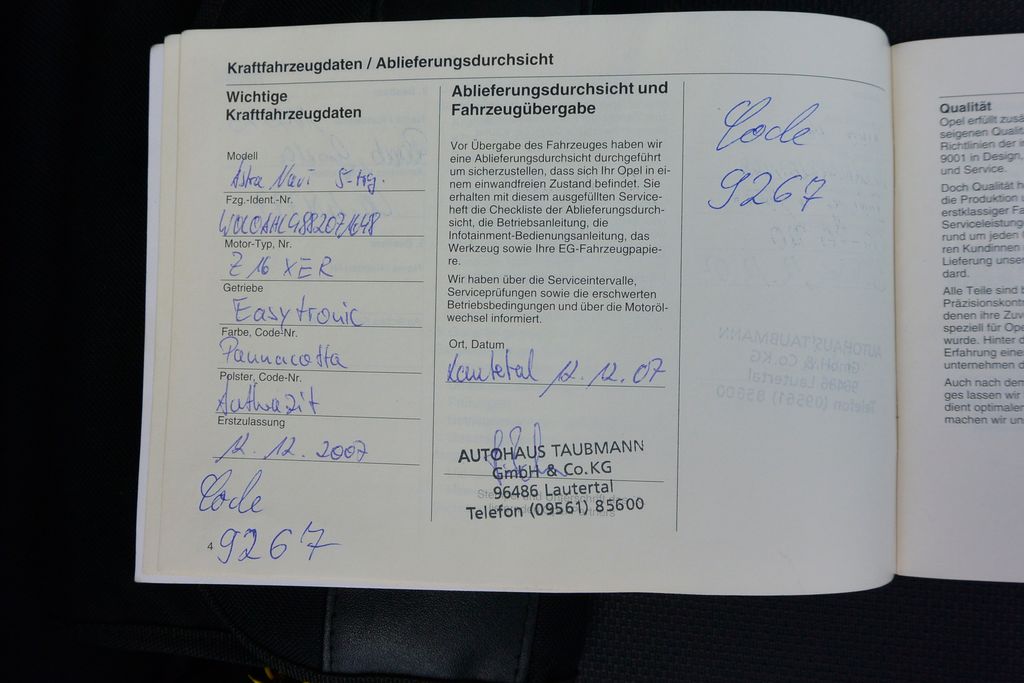 Kraftfahrzeugdaten / Ablieferungsdurchsicht
Wichtige
Kraftfahrzeugdaten
Modell
Astra Navi 5-trg.
Fzg.-Ident.-Nr.
Motor-Typ, Nr.
Z 16 XER
Getriebe
Easytronic
Farbe, Code-Nr.
Pannacotta
Polster, Code-Nr.
Anthrazit
Erstzulassung
12.12.2007
Code
9267
4
Ablieferungsdurchsicht und
Fahrzeugübergabe
Vor Übergabe des Fahrzeuges haben wir
eine Ablieferungsdurchsicht durchgeführt
um sicherzustellen, dass sich Ihr Opel in ei-
nem einwandfreien Zustand befindet. Sie
erhalten mit diesem ausgefüllten Service-
heft die Checkliste der Ablieferungsdurch-
sicht, die Betriebsanleitung, die
Infotainment-Bedienungsanleitung, das
Werkzeug sowie Ihre EG-Fahrzeugpapie-
re.
Wir haben über die Serviceintervalle,
Serviceprüfungen sowie die erschwerten
Betriebsbedingungen und über die Motoröl-
wechsel informiert.
Ort, Datum
Lautertal 12.12.07
AUTOHAUS TAUBMANN
GmbH & Co.KG
96486 Lautertal
Telefon (09561) 85600
Code
9267
Qualität
Opel erfüllt zusä
seigenen Qualit
Richtlinien der i
9001 in Design,
und Service.
Doch Qualität h
die Produktion
erstklassiger Fa
Serviceleistung
rund um jeden
ren Kundinnen
Lieferung unse
dard.
Alle Teile sind b
Präzisionskont
denen ihre Zuv
speziell für Ope
wurde. Hinter d
Erfahrung eine
unternehmen d
Auch nach dem
ges lassen wir
dient optimale
machen wir un